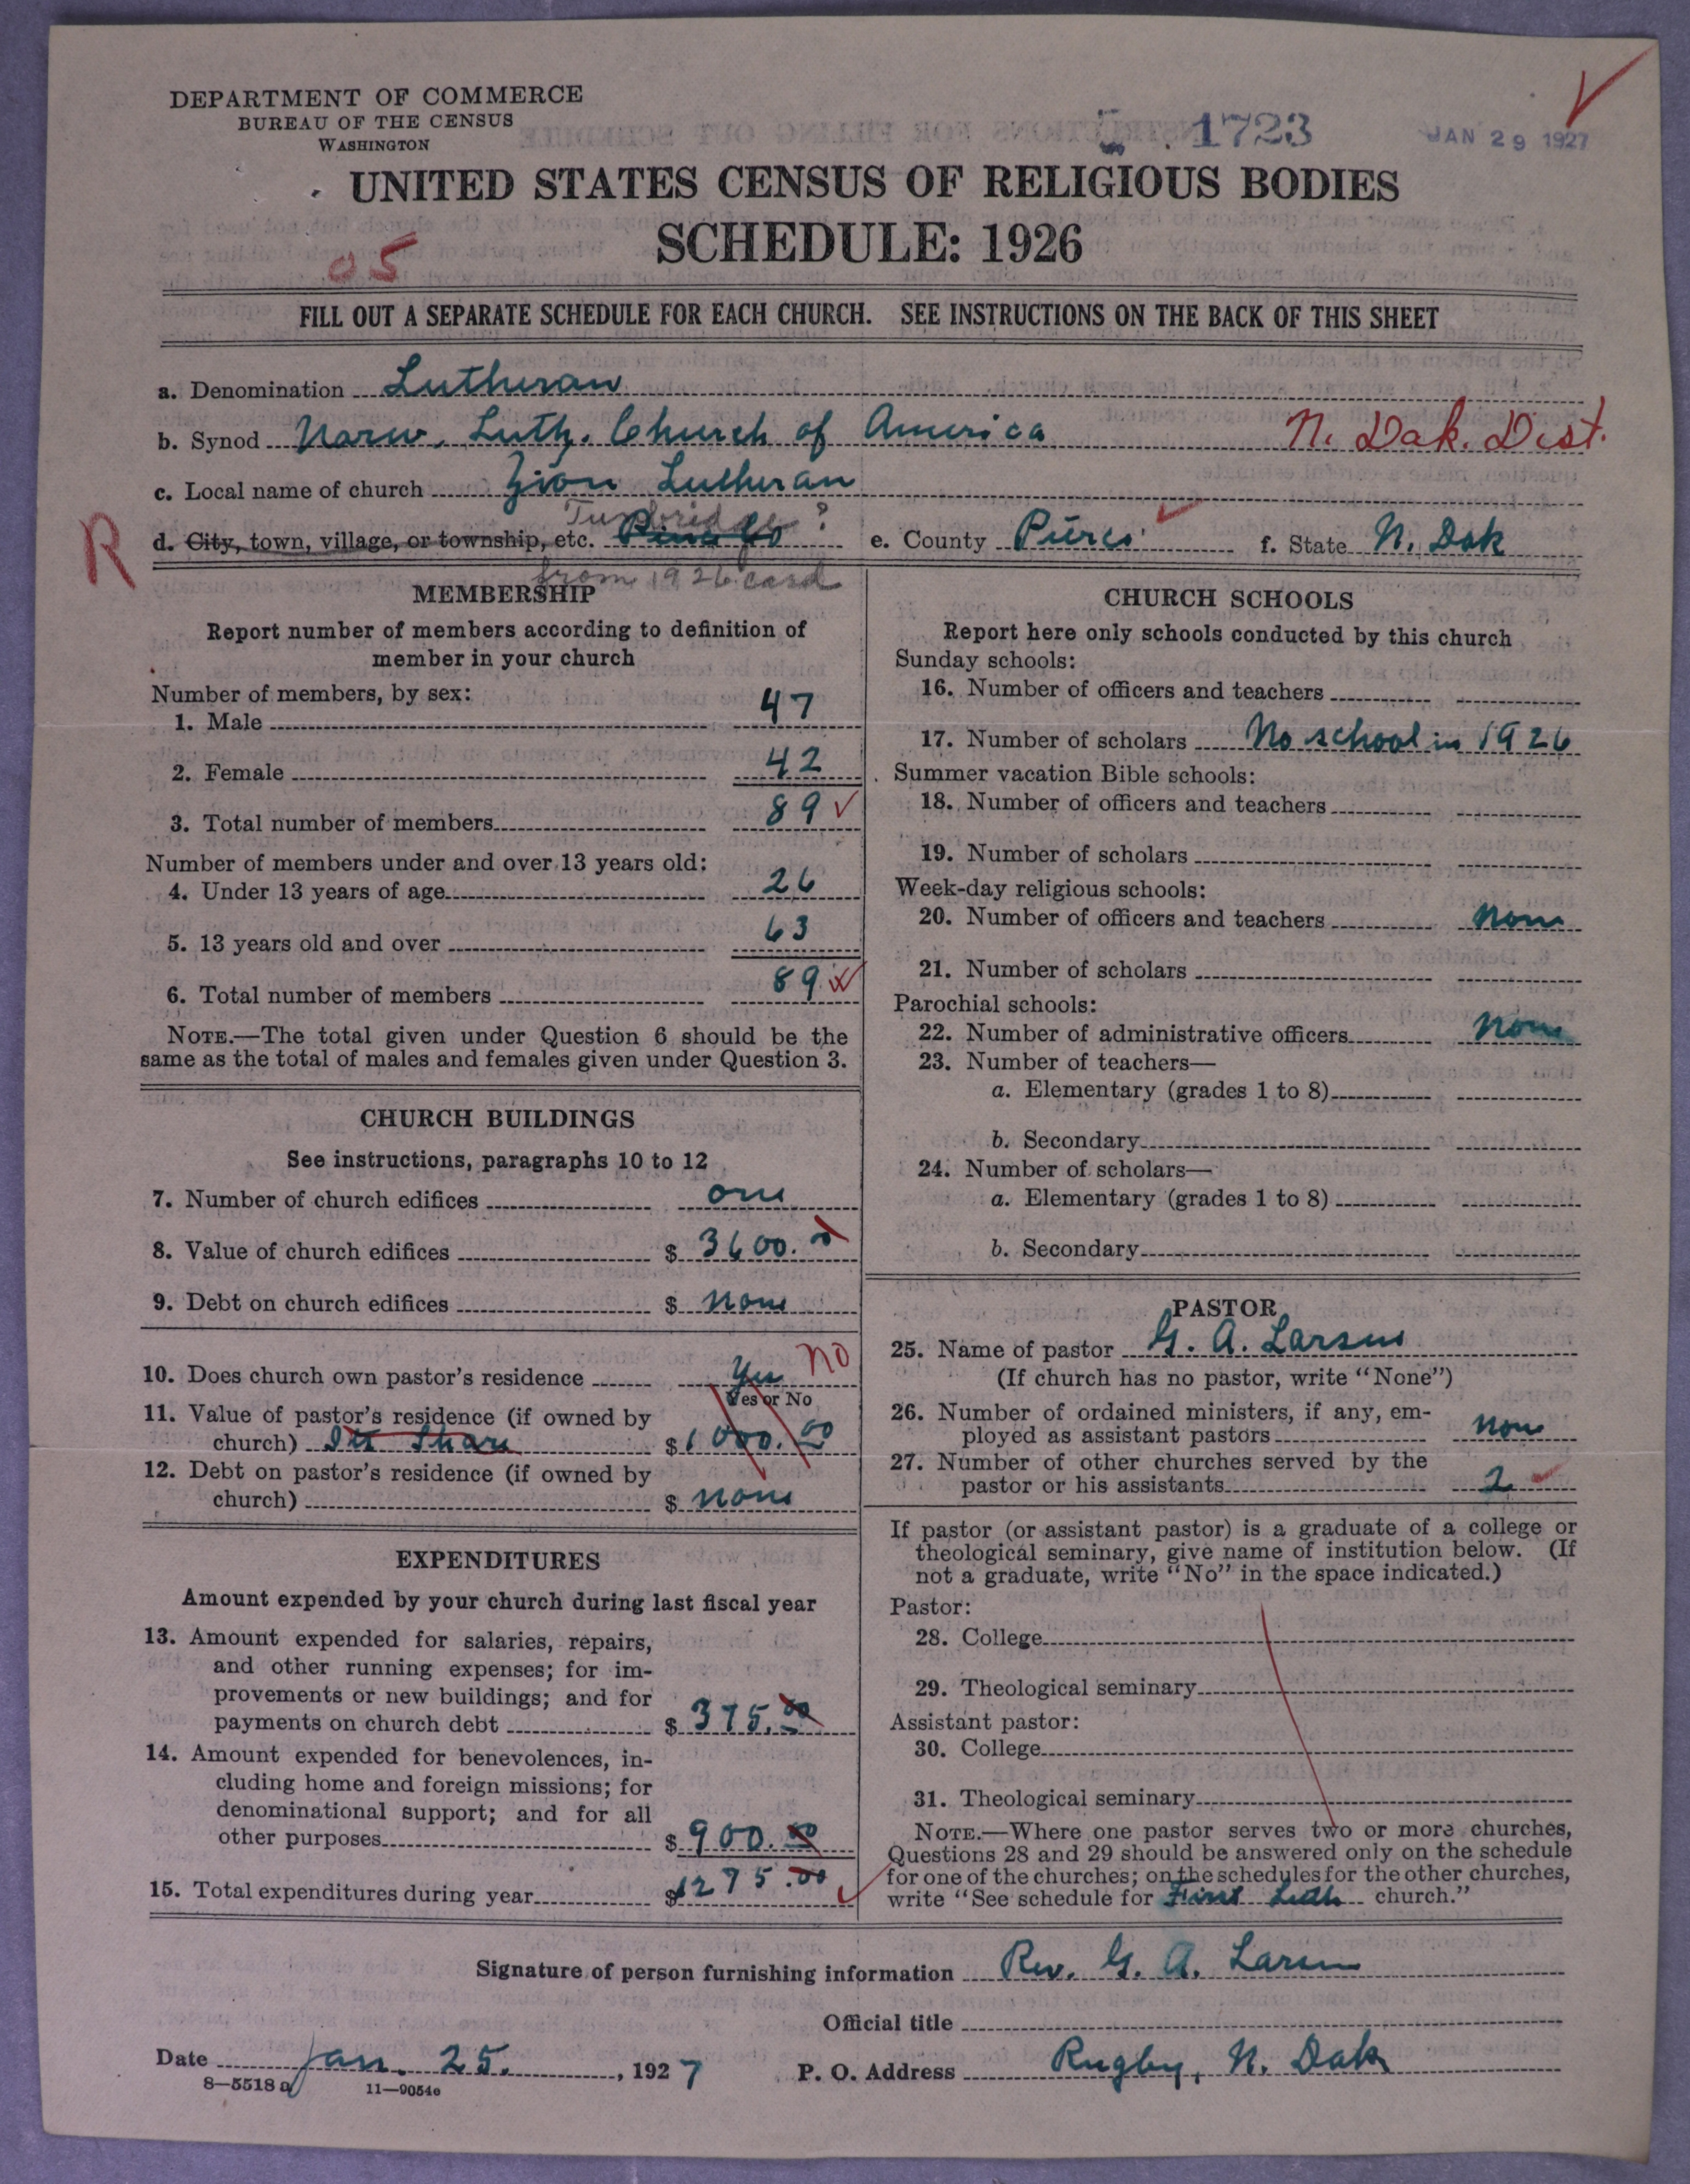 DEPARTMENT OF COMMERCE
BUREAU OF THE CENSUS
WASHINGTON
1723
JAN 29 1927
UNITED STATES CENSUS OF RELIGIOUS BODIES
SCHEDULE: 1926
05
FILL OUT A SEPARATE SCHEDULE FOR EACH CHURCH. SEE INSTRUCTIONS ON THE BACK OF THIS SHEET
a. Denomination Lutheran
b. Synod Norw. Luth. Church of America N. Dak. Dist.
c. Local name of church Zion Lutheran
Tunbridge?
R d. City, town, village, or township, etc. e. County Pierce f. State N. Dak
from 1926 card
MEMBERSHIP
Report number of members according to definition of
member in your church
Number of members, by sex:
1. Male 47
2. Female 42
3. Total number of members 89
Number of members under and over 13 years old:
4. Under 13 years of age 26
5. 13 years old and over 63
6. Total number of members 89
NOTE.—The total given under Question 6 should be the
same as the total of males and females given under Question 3.
CHURCH BUILDINGS
See instructions, paragraphs 10 to 12
7. Number of church edifices one
8. Value of church edifices $ 3600.00
9. Debt on church edifices $ none
10. Does church own pastor's residence Yes No
Yes or No
11. Value of pastor's residence (if owned by
church) Its Share $ 1000.00
12. Debt on pastor's residence (if owned by
church) $ none
EXPENDITURES
Amount expended by your church during last fiscal year
13. Amount expended for salaries, repairs,
and other running expenses; for im-
provements or new buildings; and for
payments on church debt $ 375.00
14. Amount expended for benevolences, in-
cluding home and foreign missions; for
denominational support; and for all
other purposes $ 900.00
15. Total expenditures during year $1275.00
CHURCH SCHOOLS
Report here only schools conducted by this church
Sunday schools:
16. Number of officers and teachers
17. Number of scholars No school in 1926
Summer vacation Bible schools:
18. Number of officers and teachers
19. Number of scholars
Week-day religious schools:
20. Number of officers and teachers none
21. Number of scholars
Parochial schools:
22. Number of administrative officers none
23. Number of teachers—
a. Elementary (grades 1 to 8)
b. Secondary
24. Number of scholars—
a. Elementary (grades 1 to 8)
b. Secondary
PASTOR
25. Name of pastor G. A. Larsen
(If church has no pastor, write "None")
26. Number of ordained ministers, if any, em-
ployed as assistant pastors none
27. Number of other churches served by the
pastor or his assistants 2
If pastor (or assistant pastor) is a graduate of a college or
theological seminary, give name of institution below. (If
not a graduate, write "No" in the space indicated.)
Pastor:
28. College
29. Theological seminary
Assistant pastor:
30. College
31. Theological seminary
NOTE.—Where one pastor serves two or more churches,
Questions 28 and 29 should be answered only on the schedule
for one of the churches; on the schedules for the other churches,
write "See schedule for First Luth church."
Signature of person furnishing information Rev. G. A. Larsen
Official title
Date Jan. 25., 1927 P. O. Address Rugby, N. Dak
8—5518 a 11—9054e